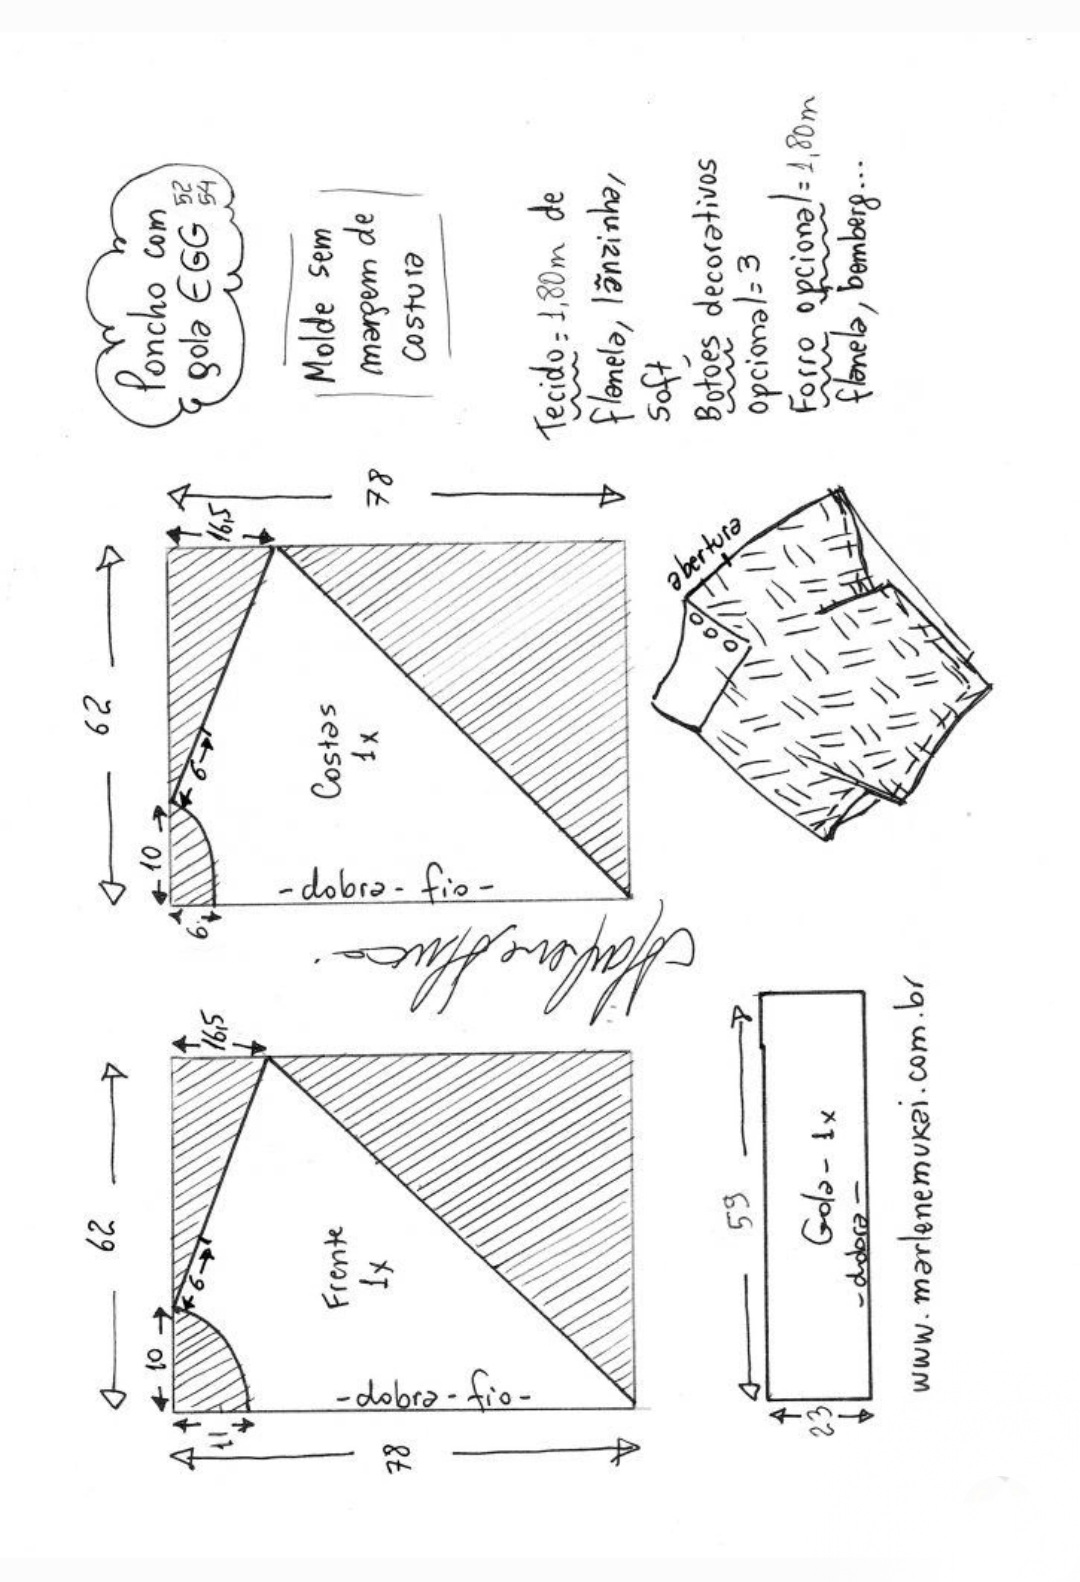 Poncho com
gola EGG 52
54
Molde sem
margem de
costura
Tecido = 1,80m de
flanela, lãnzinha,
Soft
Botões decorativos
opcional = 3
Forro opcional = 1,80m
flanela, bemberg...
62
10
6
16,5
78
Costas
1x
-dobra- fio-
6
abertura
Marlene Mukai
62
10
6
16,5
11
78
Frente
1x
-dobra- fio-
59
23
Gola - 1x
-dobra-
www.marlenemukai.com.br